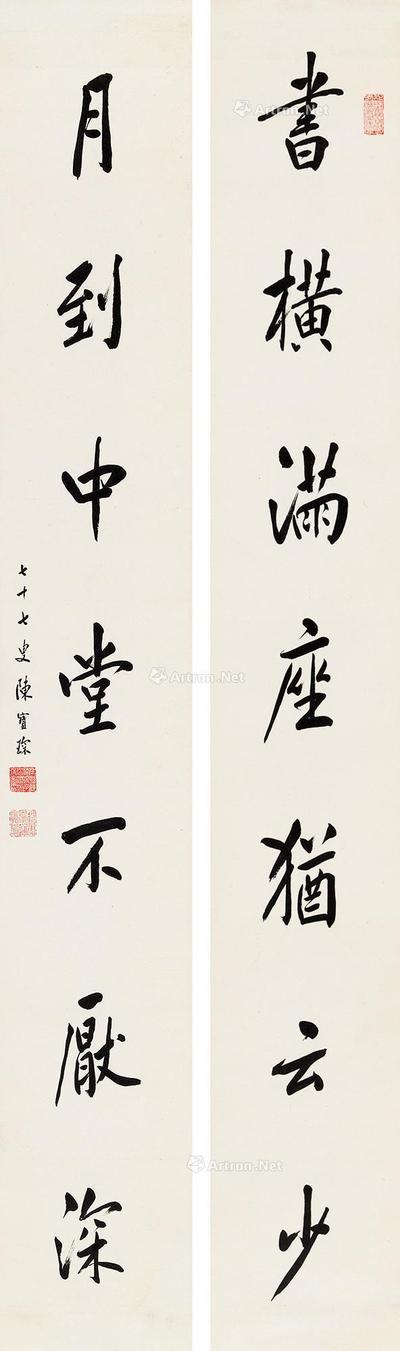 書橫滿座猶云少
月到中堂不厭深
七十七叟陳寶琛
Artron.Net
Artron.Net
Artron.Net